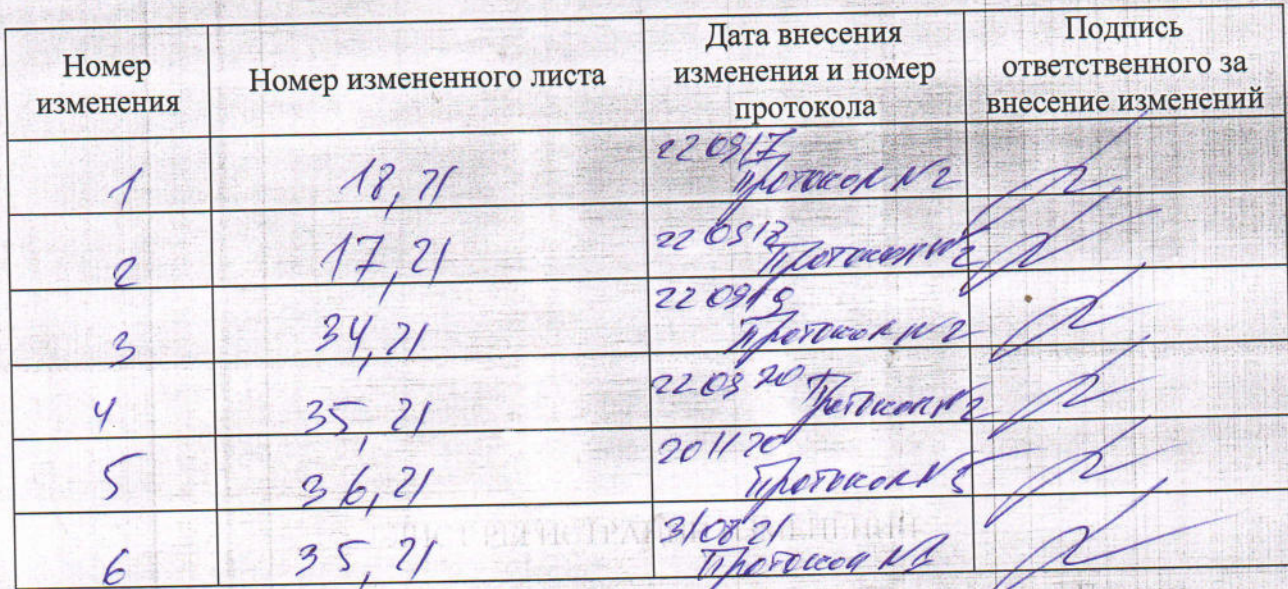 Номер
изменения
Номер измененного листа
Дата внесения
изменения и номер
протокола
Подпись
ответственного за
внесение изменений
1
18, 21
22 09 17
Протокол №2
2
17, 21
22 09 17
Протокол №2
3
34, 21
22 09 19
Протокол №2
4
35, 21
22 09 20
Протокол №2
5
36, 21
20 11 20
Протокол №3
6
35, 21
31 08 21
Протокол №1